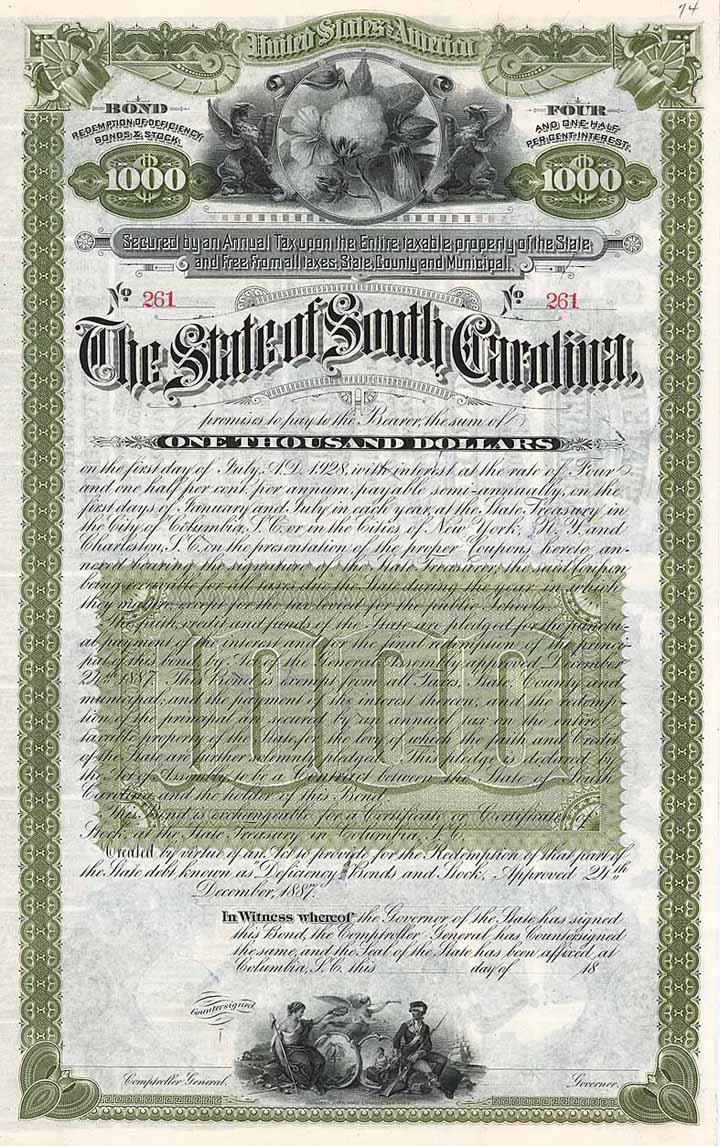 74
United States of America
BOND
REDEMPTION OF DEFICIENCY
BONDS & STOCK.
$
1000
FOUR
AND ONE-HALF
PER CENT. INTEREST.
$
1000
Secured by an Annual Tax upon the Entire, taxable property of the State,
and Free From all taxes; State, County and Municipal.
No 261
No 261
The State of South Carolina,
promises to pay to the Bearer, the sum of
ONE THOUSAND DOLLARS
on the first day of July, A.D. 1928, with interest at the rate of Four
and one half per cent. per annum, payable semi-annually, on the
first days of January and July in each year, at the State Treasury in
the City of Columbia, S.C. or in the Cities of New York, N.Y. and
Charleston, S.C. on the presentation of the proper Coupons hereto an-
nexed bearing the signature of the State Treasurer, the said Coupon
being receivable for all taxes due the State during the year in which
they mature, except for the tax levied for the public Schools.
The faith, credit and funds of the State are pledged for the punctu-
al payment of the interest and of the final redemption of the princi-
pal of this bond, by Act of the General Assembly approved December
24th 1887. This Bond is exempt from all Taxes, State, County and
municipal; and the payment of the interest thereon, and the redemp-
tion of the principal are secured by an annual tax on the entire
taxable property of the State, for the levy of which the faith and Credit
of the State are further solemnly pledged. This pledge is declared by
the Act of Assembly to be a Contract between the State of South
Carolina and the holder of this Bond.
This Bond is exchangeable for a Certificate or Certificates of
Stock, at the State Treasury in Columbia, S.C.
Created by virtue of an Act to provide for the Redemption of that part of
the State debt known as "Deficiency" Bonds and Stock. Approved 24th
December, 1887.
1000
In Witness whereof the Governor of the State has signed
this Bond, the Comptroller General has Countersigned
the same, and the Seal of the State has been affixed, at
Columbia, S.C. this day of 18
Countersigned
Comptroller General.
Governor.